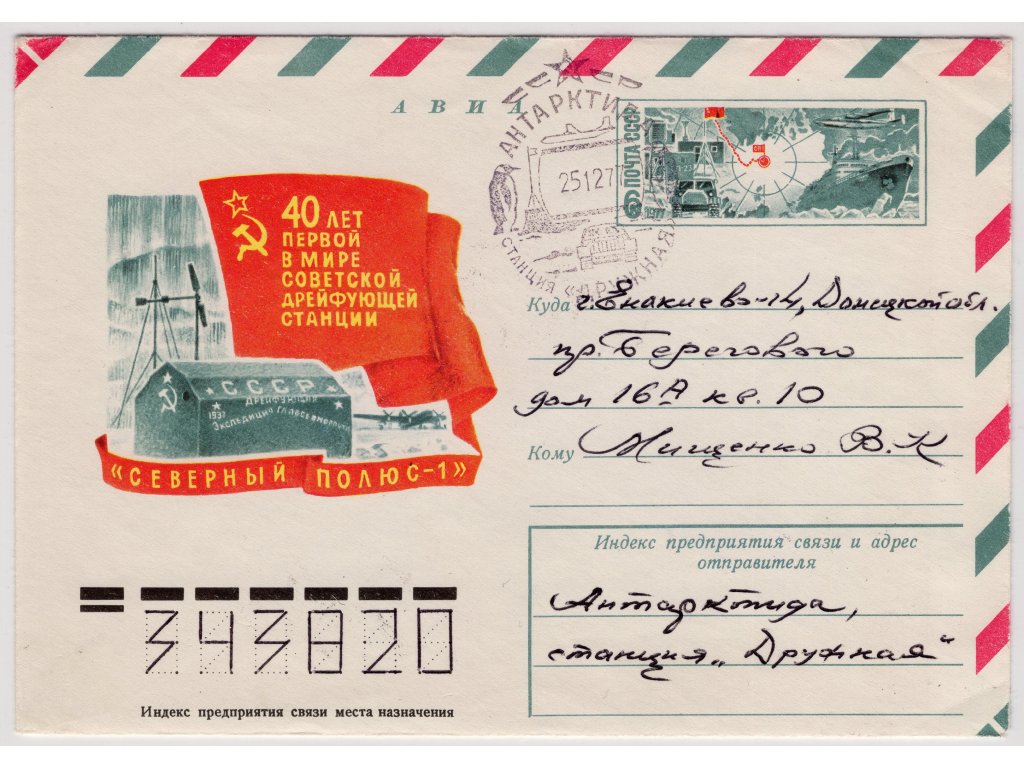 АВИА
АНТАРКТИ
25127
СТАНЦИЯ «ДРУЖНАЯ
6 ПОЧТА СССР
1977
40 ЛЕТ
ПЕРВОЙ
В МИРЕ
СОВЕТСКОЙ
ДРЕЙФУЮЩЕЙ
СТАНЦИИ
СССР
ДРЕЙФУЮЩАЯ
1937 ЭКСПЕДИЦИЯ ГЛАВСЕВМОРПУТИ
«СЕВЕРНЫЙ ПОЛЮС-1»
Куда г. Енакиево-14, Донецкой обл.
пр. Берегового
дом 16А кв. 10
Кому Мищенко В. К
Индекс предприятия связи и адрес
отправителя
Антарктида,
станция „Дружная“
343820
Индекс предприятия связи места назначения